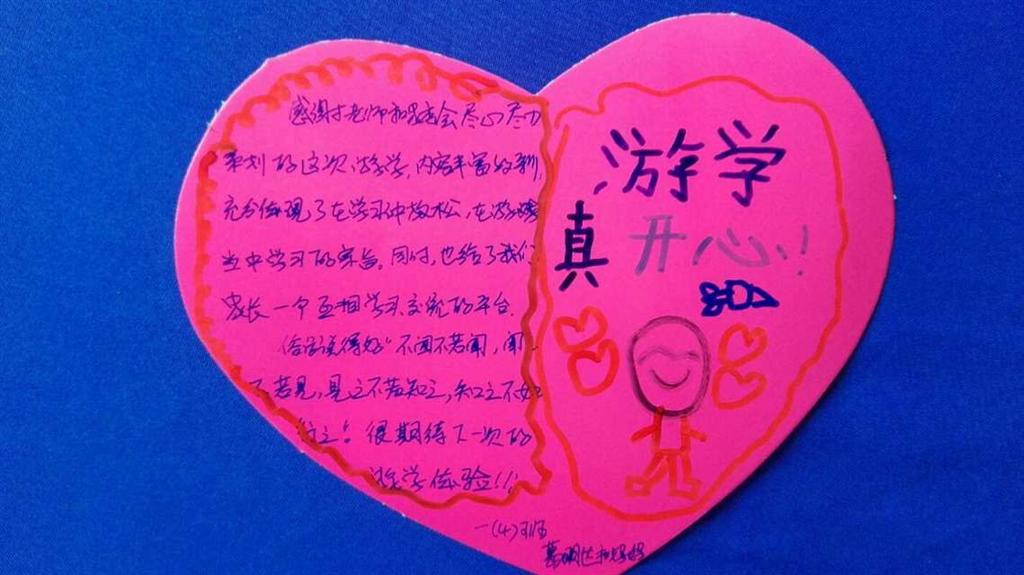 感谢才老师和家委会尽心尽力
策划的这次游学,内容丰富约新,
充分体现了在学习中放松,在游嬉
当中学习的宗旨。同时,也给了我们
家长一个互相学习交流的平台.
俗话说得好"不闻不若闻,闻
不若见,见之不若知之,知之不如
行之"。很期待下一次的
游学体验!!!
一(4)班
葛明达和妈妈
游学
真开心!